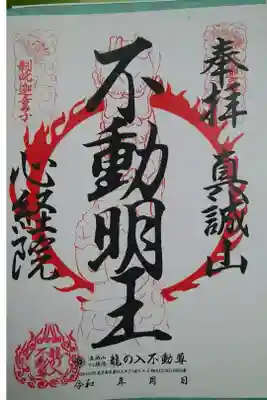 奉拝 真誠山
不動明王
心経院
制吒迦童子
龍の入不動尊
令和 年 月 日